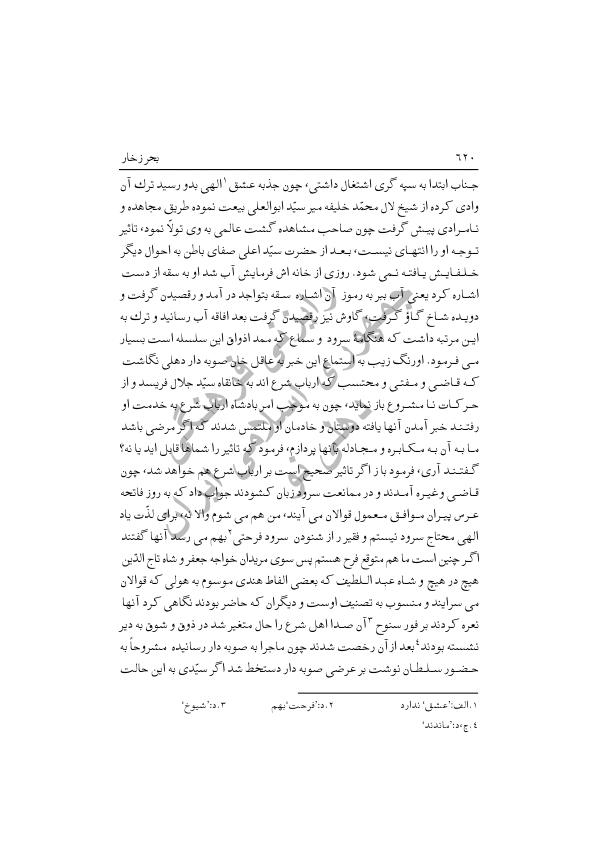 ۶۲۰ بحر زخار
جناب ابتدا به سپه گری اشتغال داشتی، چون جذبه عشق ۱ الهی بدو رسید ترك آن
وادی کرده از شیخ لال محمّد خلیفه میر سیّد ابوالعلی بیعت نموده طریق مجاهده و
نامرادی پیش گرفت چون صاحب مشاهده گشت عالمی به وی تولّا نمود، تاثیر
توجه او را انتهای نیست، بعد از حضرت سیّد اعلی صفای باطن به احوال دیگر
خلفایش یافته نمی شود. روزی از خانه اش فرمایش آب شد او به سقه از دست
اشاره کرد یعنی آب بیر به رموز آن اشاره سقه بتواجد در آمد و رقصیدن گرفت و
دویده شاخ گاؤ گرفت، گاوش نیز رقصیدن گرفت بعد افاقه آب رسانید و ترك به
این مرتبه داشت که هنگامهٔ سرود و سماع که ممد اذواق این سلسله است بسیار
می فرمود. اورنگ زیب به استماع این خبر به عاقل خان صوبه دار دهلی نگاشت
که قاضی و مفتی و محتسب که ارباب شرع اند به خانقاه سیّد جلال فریسد و از
حرکات نا مشروع باز نماید، چون به موجب امر بادشاه ارباب شرع به خدمت او
رفتند خبر آمدن آنها یافته دوستان و خادمان او ملتمس شدند که اگر مرضی باشد
ما به آن به مکابره و مجادله بآنها پردازم، فرمود که تاثیر را شماها قایل اید یا نه؟
گفتند آری، فرمود با ز اگر تاثیر صحیح است بر ارباب شرع هم خواهد شد، چون
قاضی وغیره آمدند و در ممانعت سرود زبان کشودند جواب داد که به روز فاتحه
عرس پیران موافق معمول قوالان می آیند، من هم می شوم والا نه، برای لذّت یاد
الهی محتاج سرود نیستم و فقیر را ز شنودن سرود فرحتی ۲ بهم می رسد آنها گفتند
اگر چنین است ما هم متوقع فرح هستم پس سوی مریدان خواجه جعفر و شاه تاج الدّین
هیچ در هیچ و شاه عبد اللطیف که بعضی الفاظ هندی موسوم به هولی که قوالان
می سرایند و منسوب به تصنیف اوست و دیگران که حاضر بودند نگاهی کرد آنها
نعره کردند بر فور سنوح ۳ آن صدا اهل شرع را حال متغیر شد در ذوق و شوق به دیر
نشسته بودند ۴ بعد از آن رخصت شدند چون ماجرا به صوبه دار رسانیده مشروحاً به
حضور سلطان نوشت بر عرضی صوبه دار دستخط شد اگر سیّدی به این حالت
۱. الف: 'عشق' ندارد ۲. د: 'فرحت' بهم ۳. د: 'شیوخ'
۴. ج، د: 'ماندند'
رایزنی فرهنگی
جمهوری اسلامی ایران
دهلی نو